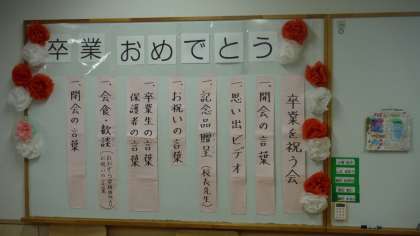 卒業おめでとう
卒業を祝う会
一、開会の言葉
一、思い出ビデオ
一、記念品贈呈（校長先生）
一、お祝いの言葉
一、卒業生の言葉
保護者の言葉
一、会食・歓談
一、閉会の言葉